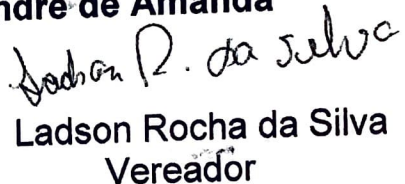 ndre de Amanda
Ladson R. da Silva
Ladson Rocha da Silva
Vereador